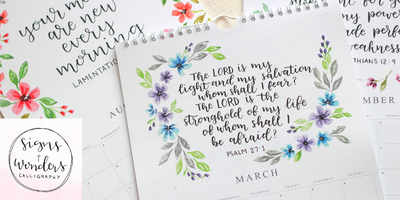 your m
are new
every
morning
LAMENTATIO
AU
The LORD is my
light and my salvation
whom shall I fear?
The LORD is the
stronghold of my life
of whom shall I
be afraid?
PSALM 27:1
MARCH
my
powe
made perf
weakness
THIANS 12:9
MBER
Signs
+
Wonders
CALLIGRAPHY